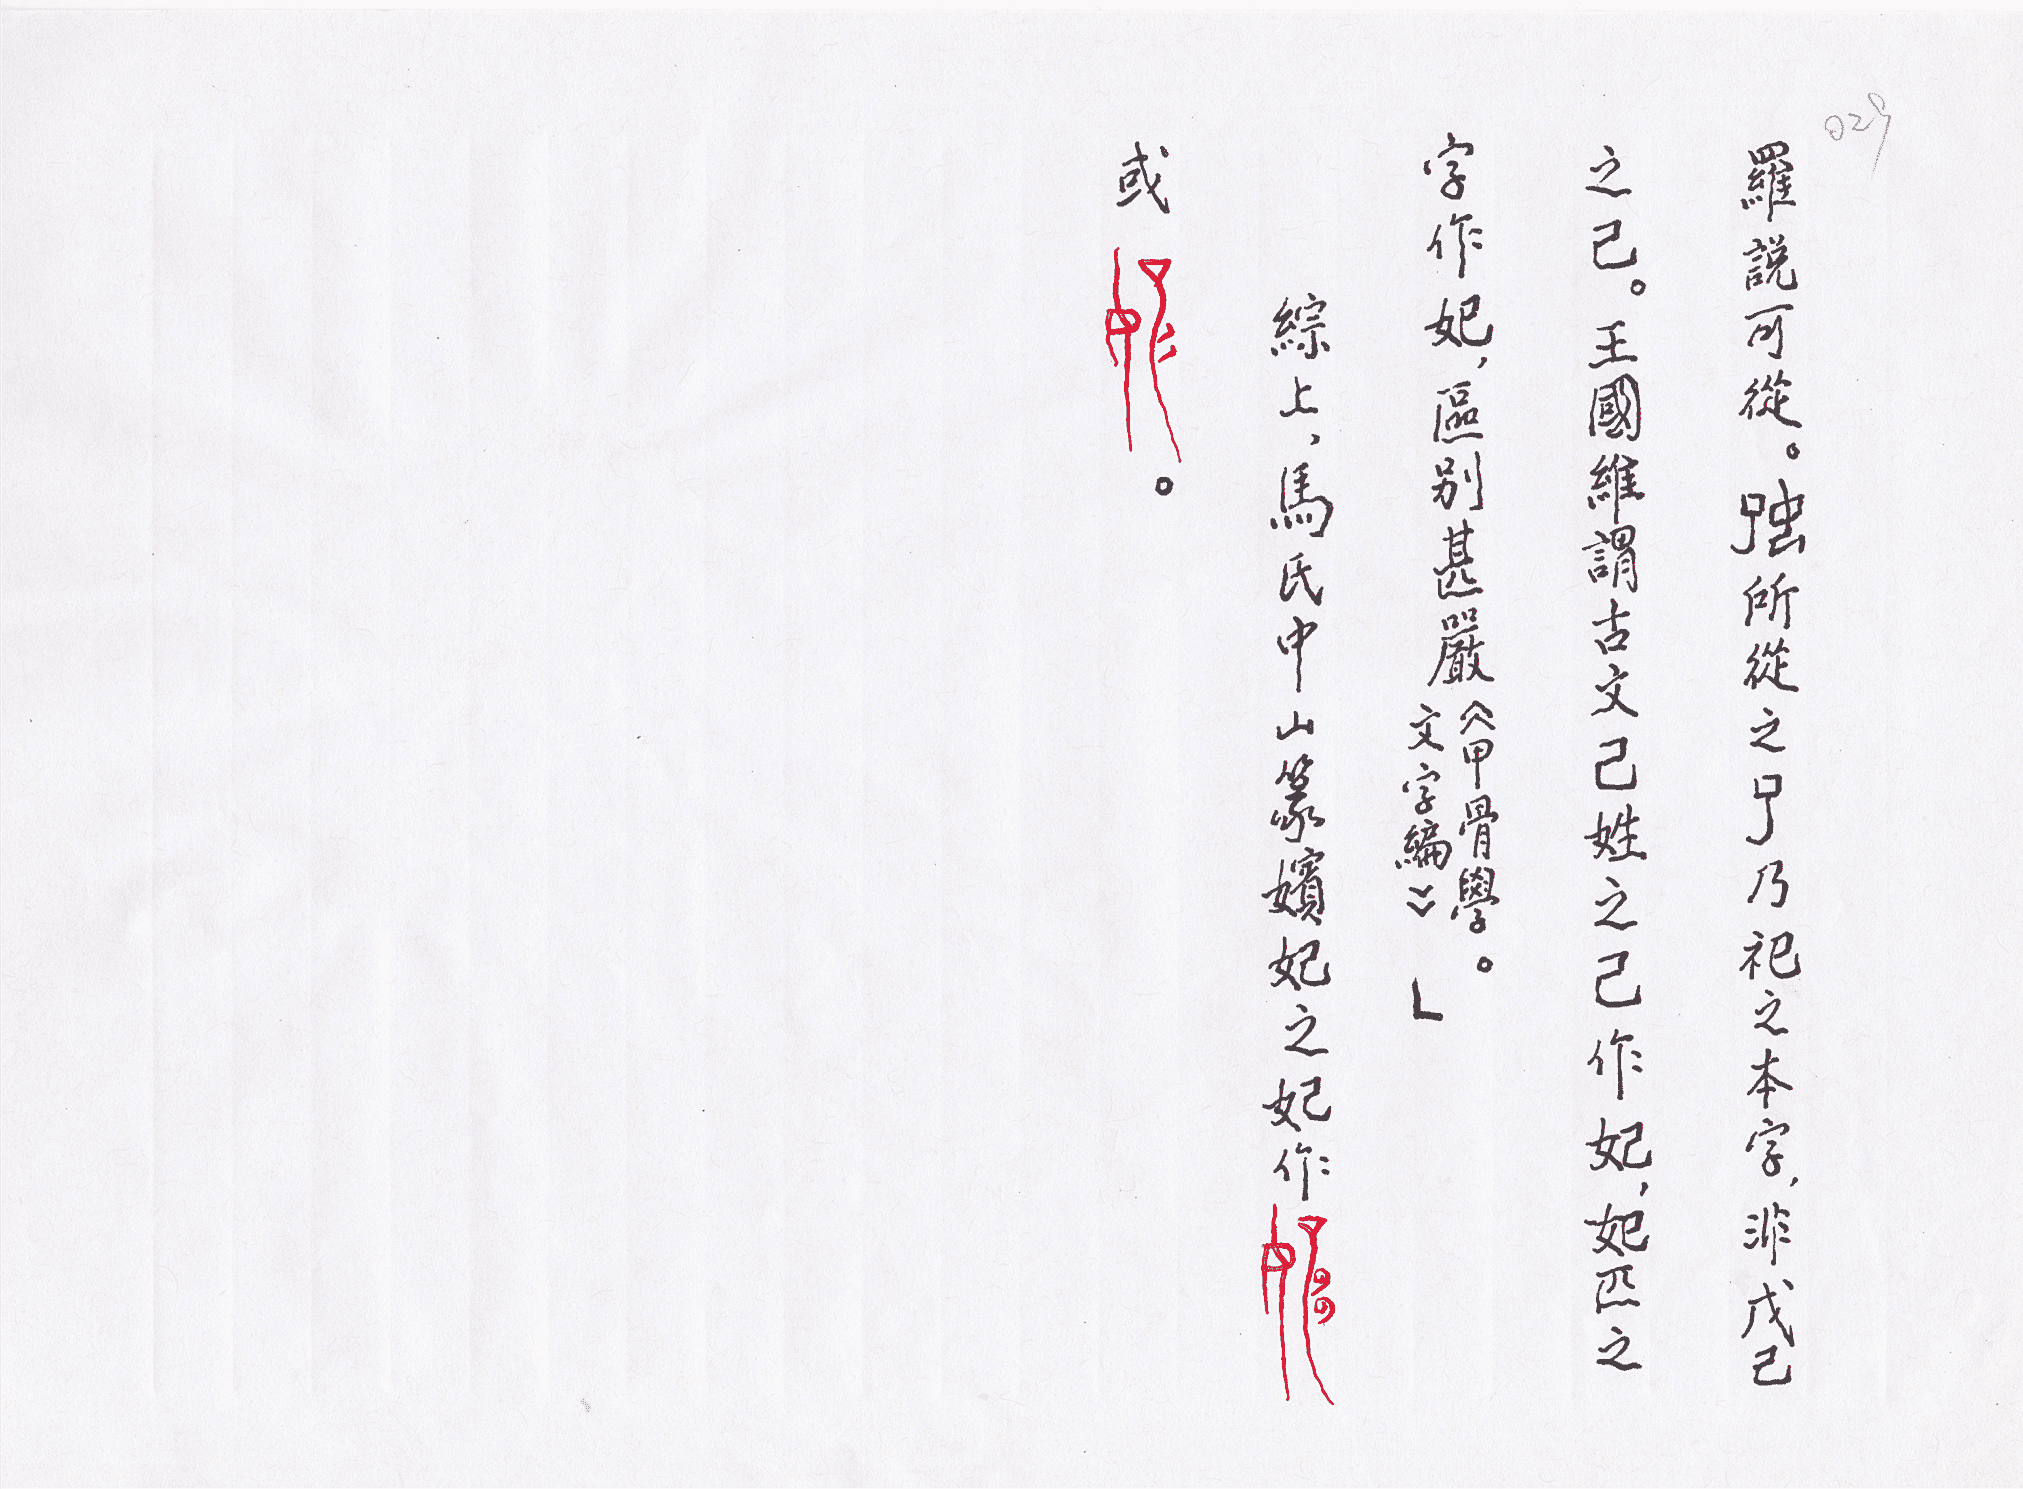 029
羅説可從。所從之乃祀之本字，非戊己
之己。王國維謂古文己姓之己作妃，妃匹之
字作妃，區别甚嚴《甲骨學。文字編》」
綜上，馬氏中山篆嬪妃之妃作
或。